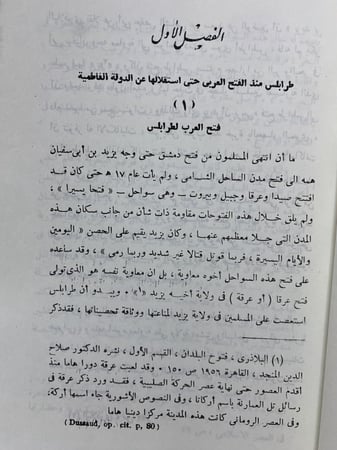 الفصل الأول
طرابلس منذ الفتح العربى حتى استقلالها عن الدولة الفاطمية
( ١ )
فتح العرب لطرابلس
ما أن انتهى المسلمون من فتح دمشق حتى وجه يزيد بن أبى سفيان
همه الى فتح مدن الساحل الشامى ، ولم يأت عام ١٧ هـ حتى كان قد
افتتح صيدا وعرقا وجبيل وبيروت ــ وهى سواحل ــ « فتحا يسيرا » ،
ولم يلق خلال هذه الفتوحات مقاومة ذات شأن من جانب سكان هذه
المدن التى جلا معظمهم عنها ، وكان يزيد يقيم على الحصن « اليومين
والأيام اليسيرة ، فربما قوتل قتالا غير شديد وربما رمى » ، وقد ساعده
على فتح هذه السواحل أخوه معاوية ، بل ان معاوية نفسه هو الذى تولى
فتح عرقا ( أو عرقة ) فى ولاية أخيه يزيد ويبدو أن طرابلس
استعصت على المسلمين فى ولاية يزيد لمناعتها ووثاقة تحصيناتها ، فقد ذكر
(١) البلاذرى ، فتوح البلدان ، القسم الأول ، نشره الدكتور صلاح
الدين المنجد ، القاهرة ١٩٥٦ ص ١٥٠ ٠ وقد لعبت عرقة دورا هاما منذ
أقدم العصور حتى نهاية عصر الحركة الصليبية ، فقد ورد ذكر عرقة فى
رسائل تل العمارنة باسم أركاتا ، وفى النصوص الآشورية جاء اسمها أركة ،
وفى العصر الرومانى كانت هذه المدينة مركزا دينيا هاما
(Dussaud, op. cit. p. 80)